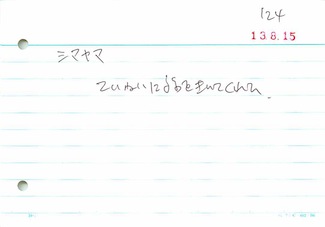 124
13.8.15
シマヤマ
ていねいに話をきいてくれた。